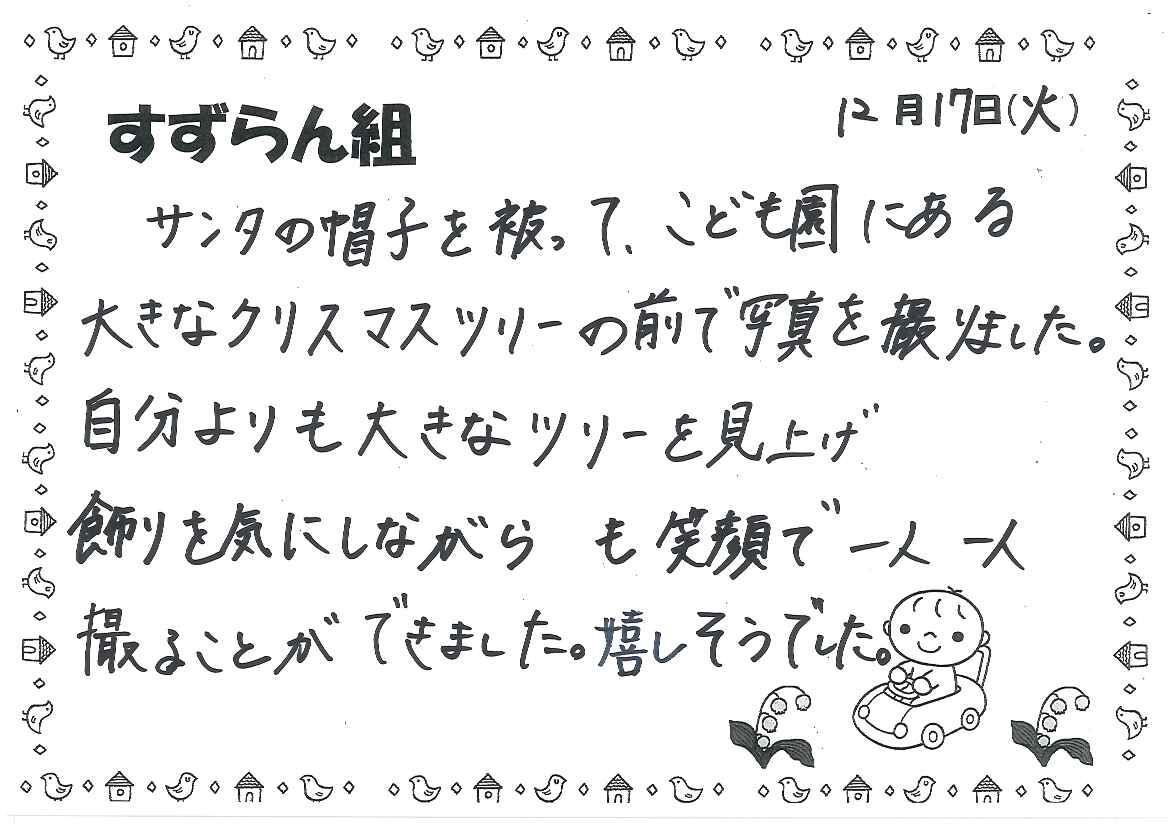 すずらん組
12月17日(火)
サンタの帽子を被って、こども園にある
大きなクリスマスツリーの前で写真を撮りました。
自分よりも大きなツリーを見上げ
飾りを気にしながら も笑顔で一人一人
撮ることができました。嬉しそうでした。